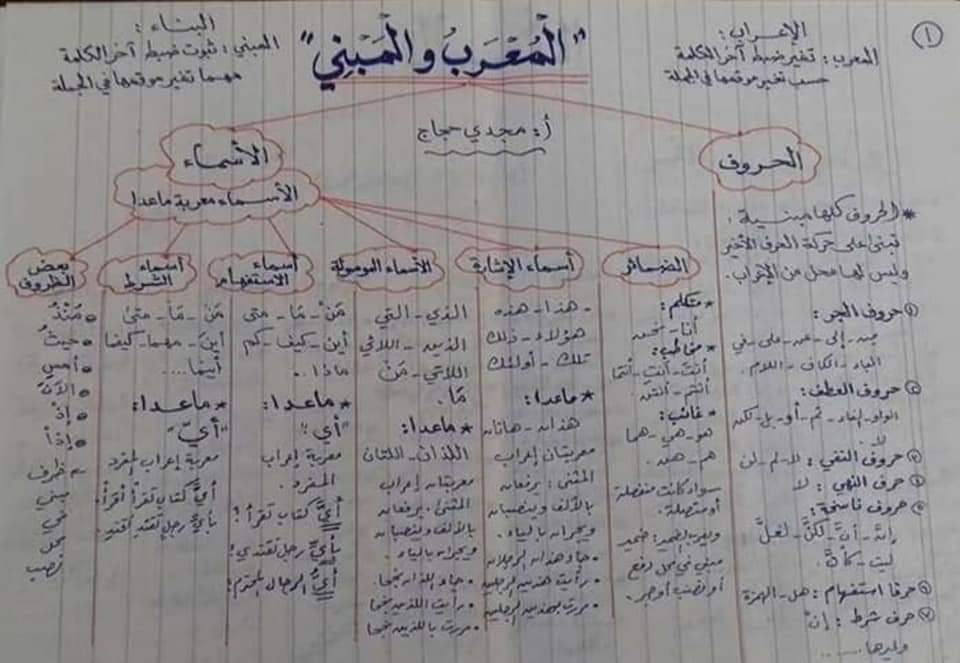 ١
الإعراب:
المعرب: تغير ضبط آخر الكلمة
حسب تغير موقعها في الجملة
"المُعْرَبُ والمَبْنِي"
البناء:
المبني: ثبوت ضبط آخر الكلمة
مهما تغير موقعها في الجملة
أ: مجدي حجاج
الحروف
* الحروف كلها مبنية:
تبنى على حركة الحرف الأخير
وليس لها محل من الإعراب.
١ حروف الجر:
من - إلى - عن - على - في
الباء - الكاف - اللام.
٢ حروف العطف:
الواو - الفاء - ثم - أو - بل - لكن
لا.
٣ حروف النفي: لا - لم - لن
٤ حرف النهي: لا
٥ حروف ناسخة:
إنَّ - أنَّ - لكنَّ - لعلَّ
ليت - كأنَّ.
٦ حرفا استفهام: هل - الهمزة
٧ حرف شرط: إنْ
الأسماء
الأسماء معربة ماعدا
الضمائر
* متكلم:
أنا - نحن
* مخاطب:
أنتَ - أنتِ - أنتما
أنتم - أنتن.
* غائب:
هو - هي - هما
هم - هن.
سواء كانت منفصلة
أو متصلة.
ويعرب الضمير: ضمير
مبني في محل رفع
أو نصب أو جر.
أسماء الإشارة
- هذا - هذه
هؤلاء - ذلك
تلك - أولئك
* ماعدا:
هذان - هاتان
معربتان إعراب
المثنى: يرفعان
بالألف وينصبان
ويجران بالياء.
• جاء هذان الرجلان
• رأيت هذين الرجلين
• مررت بهذين الرجلين
الأسماء الموصولة
الذي - التي
الذين - اللائي
اللاتي - مَنْ
مَا.
* ماعدا:
اللذان - اللتان
معربتان إعراب
المثنى: يرفعان
بالألف وينصبان
ويجران بالياء.
• جاء اللذان نجحا
• رأيت اللذين نجحا
• مررت باللذين نجحا
أسماء الاستفهام
مَنْ - مَا - متى
أين - كيف - كم
ماذا..
* ماعدا:
"أي":
معربة إعراب
المفرد.
أيَّ كتاب تقرأ؟
بأيِّ رجل تقتدي؟
أيُّ الرجال
أسماء الشرط
مَنْ - مَا - متى
أينَ - مهما - كيفما
أينما....
* ماعدا:
"أيّ"
معربة إعراب المفرد
أيَّ كتاب تقرأْ أقرأْ.
بأيِّ رجل تقتدِ أقتدِ.
بعض الظروف
• مُنْذُ
• حيثُ
• أمسِ
• الآنَ
• إذْ
• إذا
- ظرف
مبني
في
محل
نصب